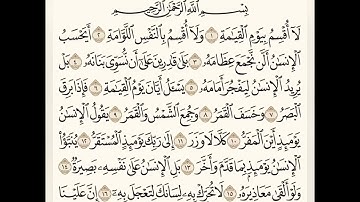 بِسْمِ اللَّهِ الرَّحْمَٰنِ الرَّحِيمِ
لَا أُقْسِمُ بِيَوْمِ الْقِيَامَةِ ١ وَلَا أُقْسِمُ بِالنَّفْسِ اللَّوَّامَةِ ٢ أَيَحْسَبُ
الْإِنسَانُ أَلَّن نَّجْمَعَ عِظَامَهُ ٣ بَلَىٰ قَادِرِينَ عَلَىٰ أَن نُّسَوِّيَ بَنَانَهُ ٤ بَلْ
يُرِيدُ الْإِنسَانُ لِيَفْجُرَ أَمَامَهُ ٥ يَسْأَلُ أَيَّانَ يَوْمُ الْقِيَامَةِ ٦ فَإِذَا بَرِقَ
الْبَصَرُ ٧ وَخَسَفَ الْقَمَرُ ٨ وَجُمِعَ الشَّمْسُ وَالْقَمَرُ ٩ يَقُولُ الْإِنسَانُ
يَوْمَئِذٍ أَيْنَ الْمَفَرُّ ١٠ كَلَّا لَا وَزَرَ ١١ إِلَىٰ رَبِّكَ يَوْمَئِذٍ الْمُسْتَقَرُّ ١٢ يُنَبَّأُ
الْإِنسَانُ يَوْمَئِذٍ بِمَا قَدَّمَ وَأَخَّرَ ١٣ بَلِ الْإِنسَانُ عَلَىٰ نَفْسِهِ بَصِيرَةٌ ١٤
وَلَوْ أَلْقَىٰ مَعَاذِيرَهُ ١٥ لَا تُحَرِّكْ بِهِ لِسَانَكَ لِتَعْجَلَ بِهِ ١٦ إِنَّ عَلَيْنَا